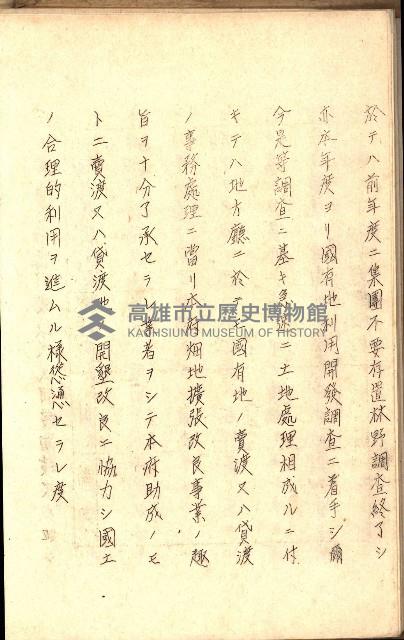 於テハ前年度ニ集團不要存置林野調査終了シ
亦本年度ヨリ國有地利用開發調査ニ着手シ爾
今是等調査ニ基キ急速ニ土地處理相成ルニ付
キテハ地方廳ニ於テモ國有地ノ賣渡又ハ貸渡
ノ事務處理ニ當リ本府畑地擴張改良事業ノ趣
旨ヲ十分了承セラレ業者ヲシテ本府助成ノモ
トニ賣渡又ハ貸渡地ノ開墾改良ニ協力シ國土
ノ合理的利用ヲ進ムル様慫慂セラレ度
高雄市立歷史博物館
KAOHSIUNG MUSEUM OF HISTORY